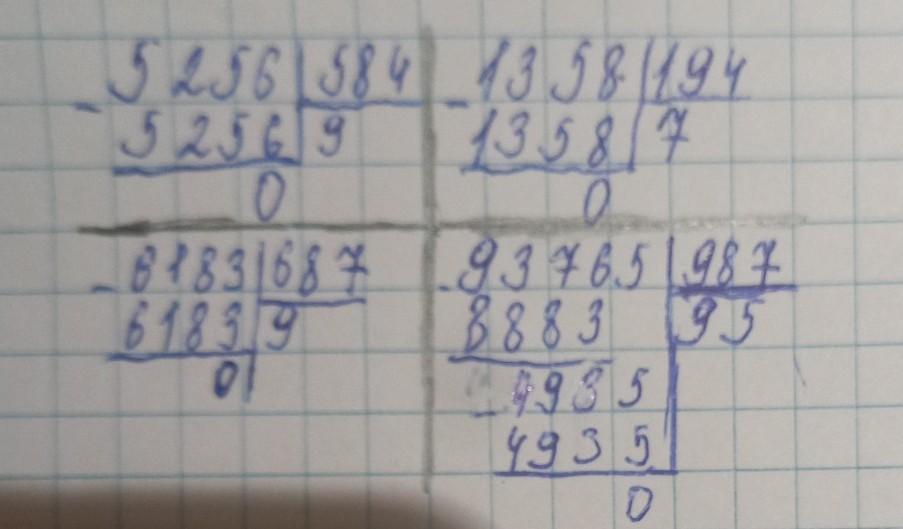 - 5256 | 584
5256 | 9
0
- 1358 | 194
1358 | 7
0
- 6183 | 687
6183 | 9
0
- 93765 | 987
8883 | 95
- 4935
4935
0